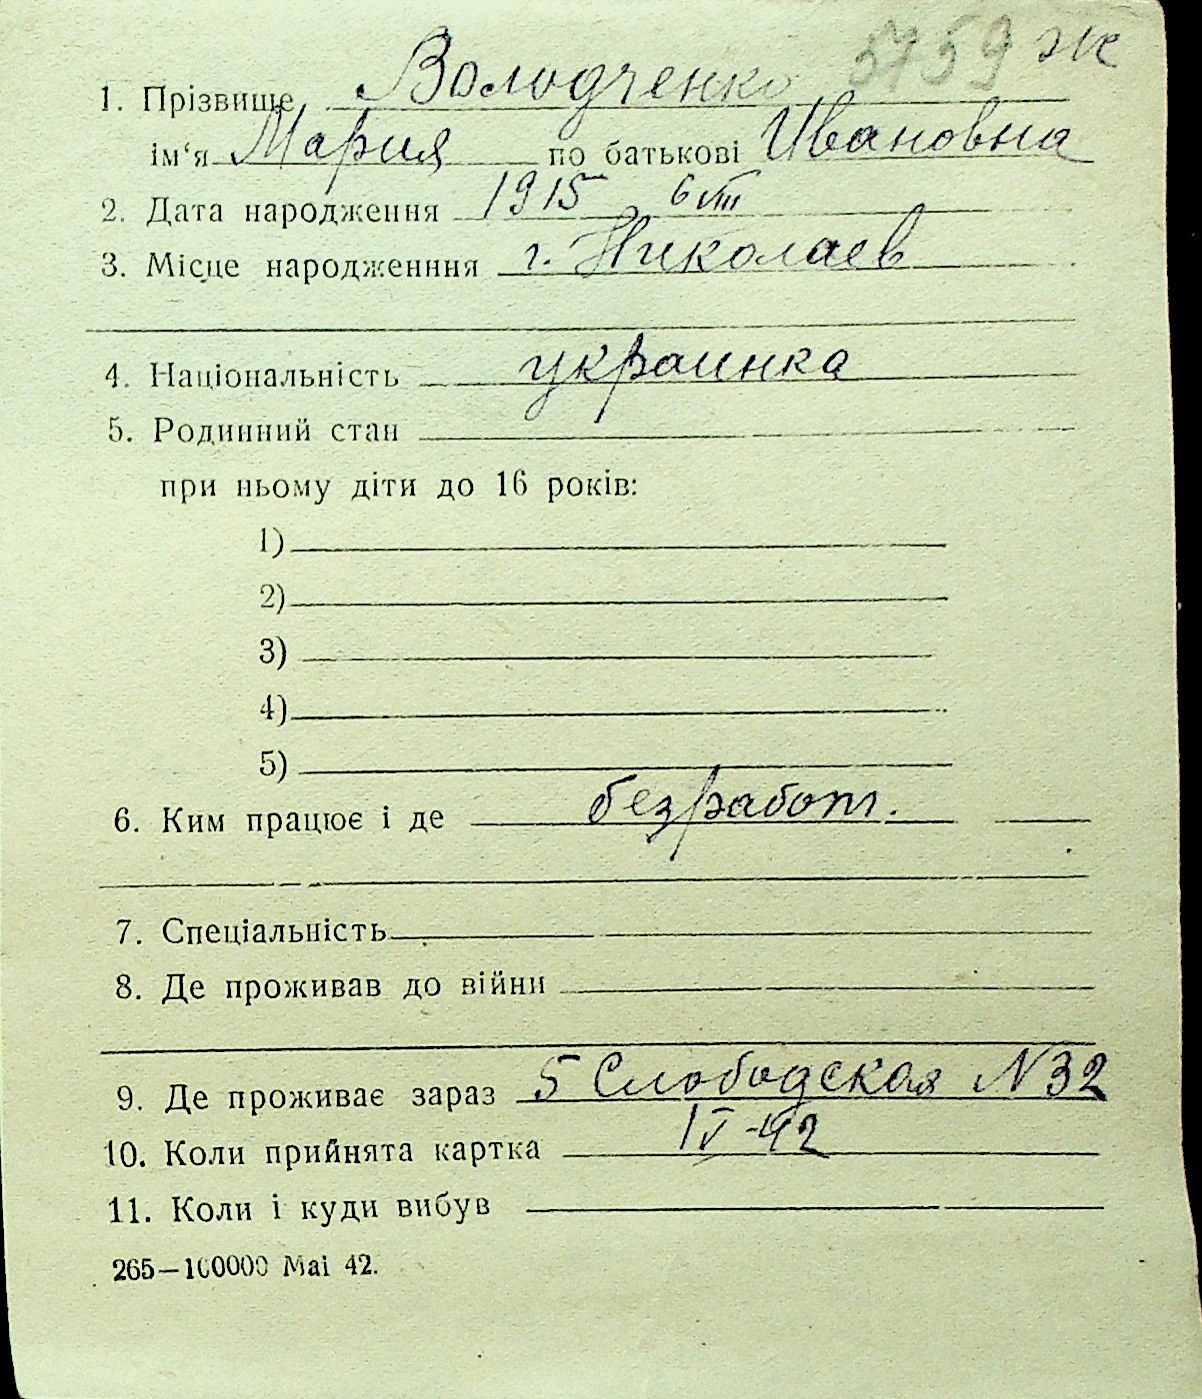 5759 ж
1. Прізвище Володченко
ім‘я Мария по батькові Ивановна
2. Дата народження 1915 6 VIII
3. Місце народженння г. Николаев
4. Національність украинка
5. Родинний стан
при ньому діти до 16 років:
1)
2)
3)
4)
5)
6. Ким працює і де безработ.
7. Спеціальність
8. Де проживав до війни
9. Де проживає зараз 5 Слободская N 32
10. Коли прийнята картка IV-42
11. Коли і куди вибув
265—100000 Mai 42.